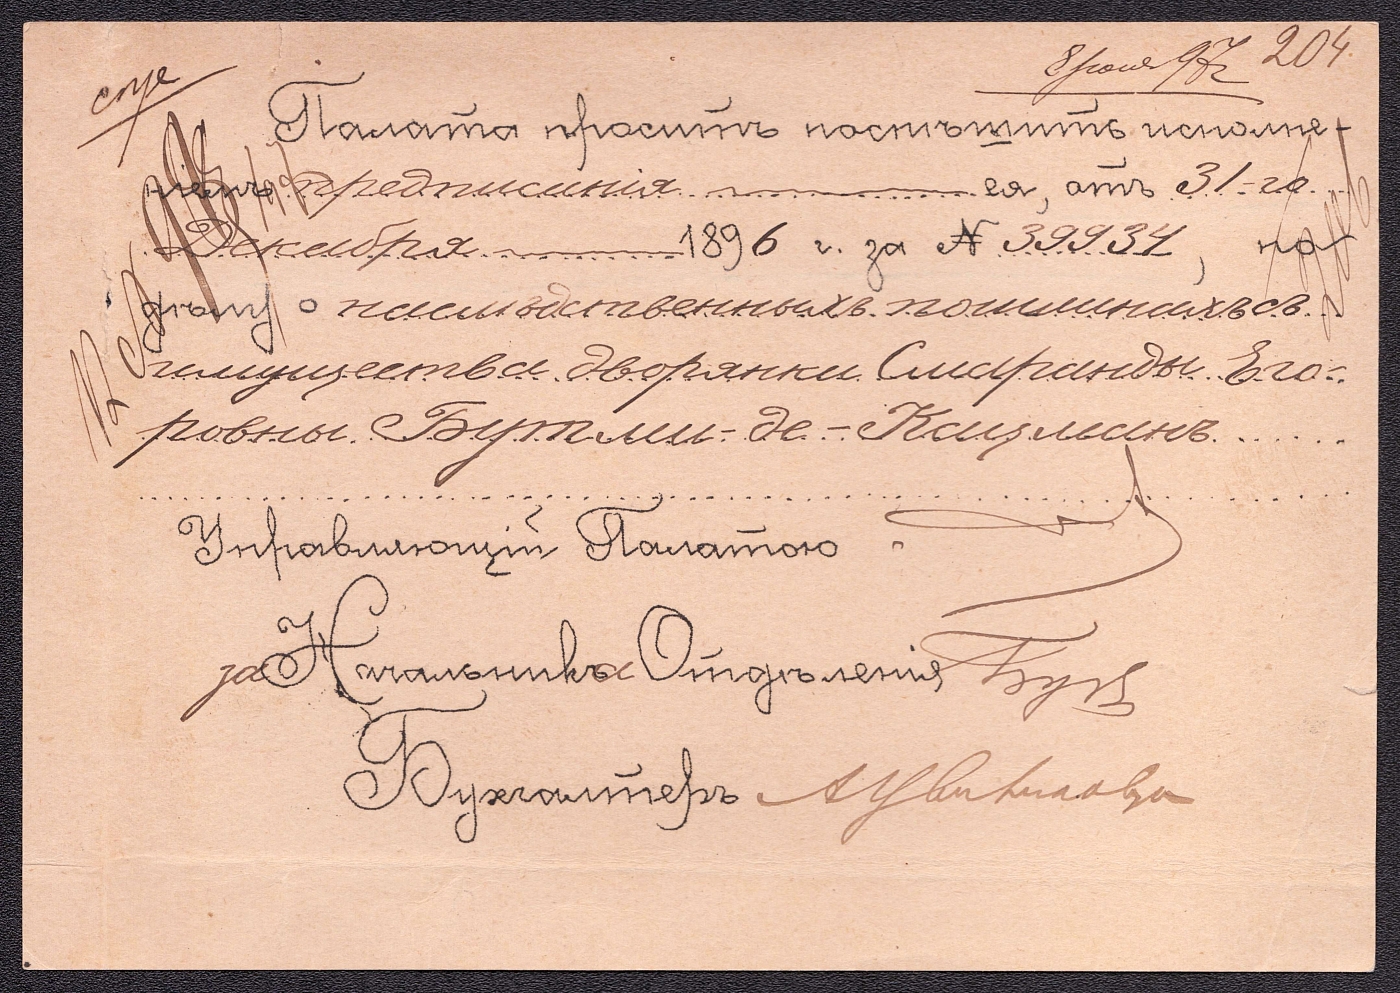 8 июля 97 г. 204.
Палата проситъ поспѣшить исполне-
ніемъ предписанія ея, отъ 31-го
Декабря 1896 г. за № 39934, по
дѣлу о наслѣдственныхъ пошлинахъ съ
имущества дворянки Смаранды Его-
ровны Бутми-де-Кацманъ
Управляющій Палатою
за Начальника Отдѣленія
Бухгалтеръ